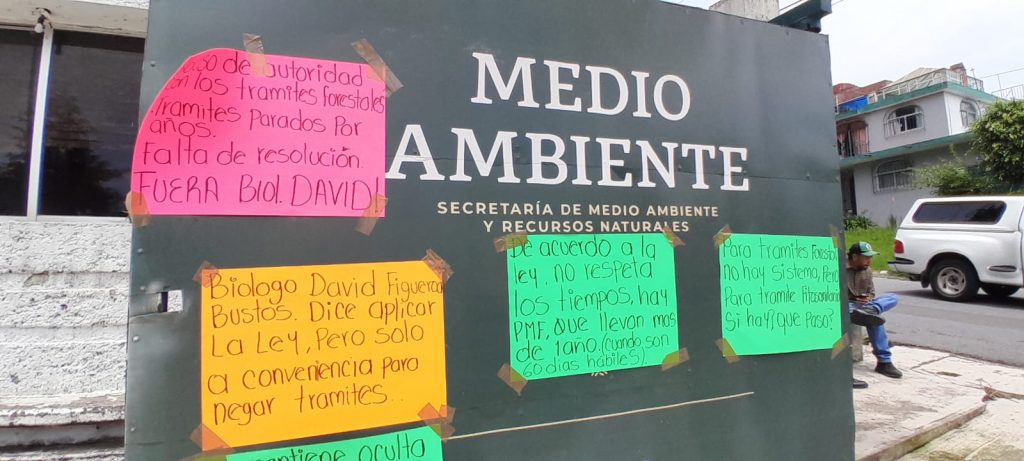 de autoridad
los tramites forestales
tramites Parados Por
años.
Falta de resolución.
FUERA Biol. DAVID!
MEDIO
AMBIENTE
SECRETARÍA DE MEDIO AMBIENTE
Y RECURSOS NATURALES
Biologo David Figueroa
Bustos. Dice aplicar
La Ley, Pero solo
a conveniencia para
negar tramites..
De acuerdo a la
ley, no respeta
los tiempos, hay
PMF, que llevan mas
de 1año, (cuando son
60 días hábiles).
Para tramites
no hay sistema, Pero
Para tramite
Si hay?¿que Paso?
mantiene oculta